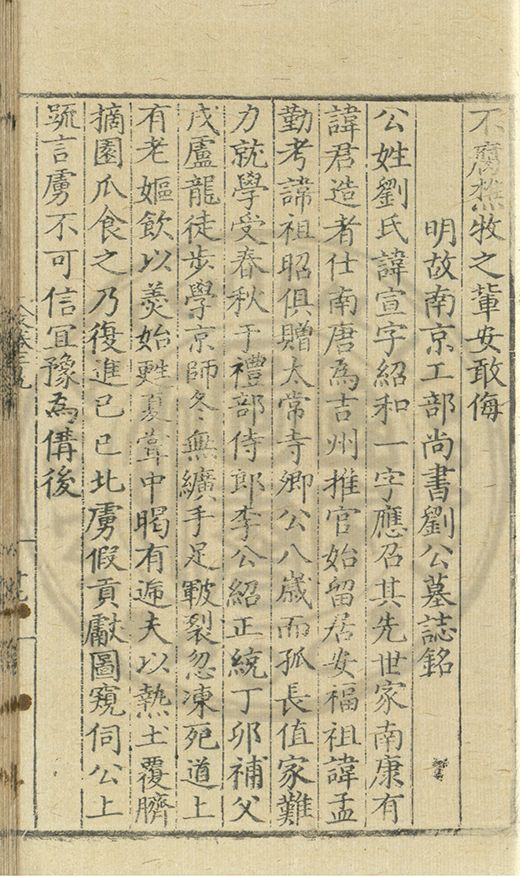 不腐樵牧之輩安敢侮
明故南京工部尚書劉公墓誌銘
公姓劉氏諱宣字紹和一字應召其先世家南康有
諱君造者仕南唐為吉州推官始留居安福祖諱孟
勤考諱祖昭俱贈太常寺卿公八歲而孤長值家難
力就學受春秋于禮部侍郎李公紹正統丁卯補父
戍盧龍徒步學京師冬無纊手足皸裂忽凍死道上
有老嫗飲以羮始甦夏葺中暍有逓夫以熱土覆臍
摘園瓜食之乃復進己巳北虜假貢獻圖窺伺公上
䟽言虜不可信宜豫為備後